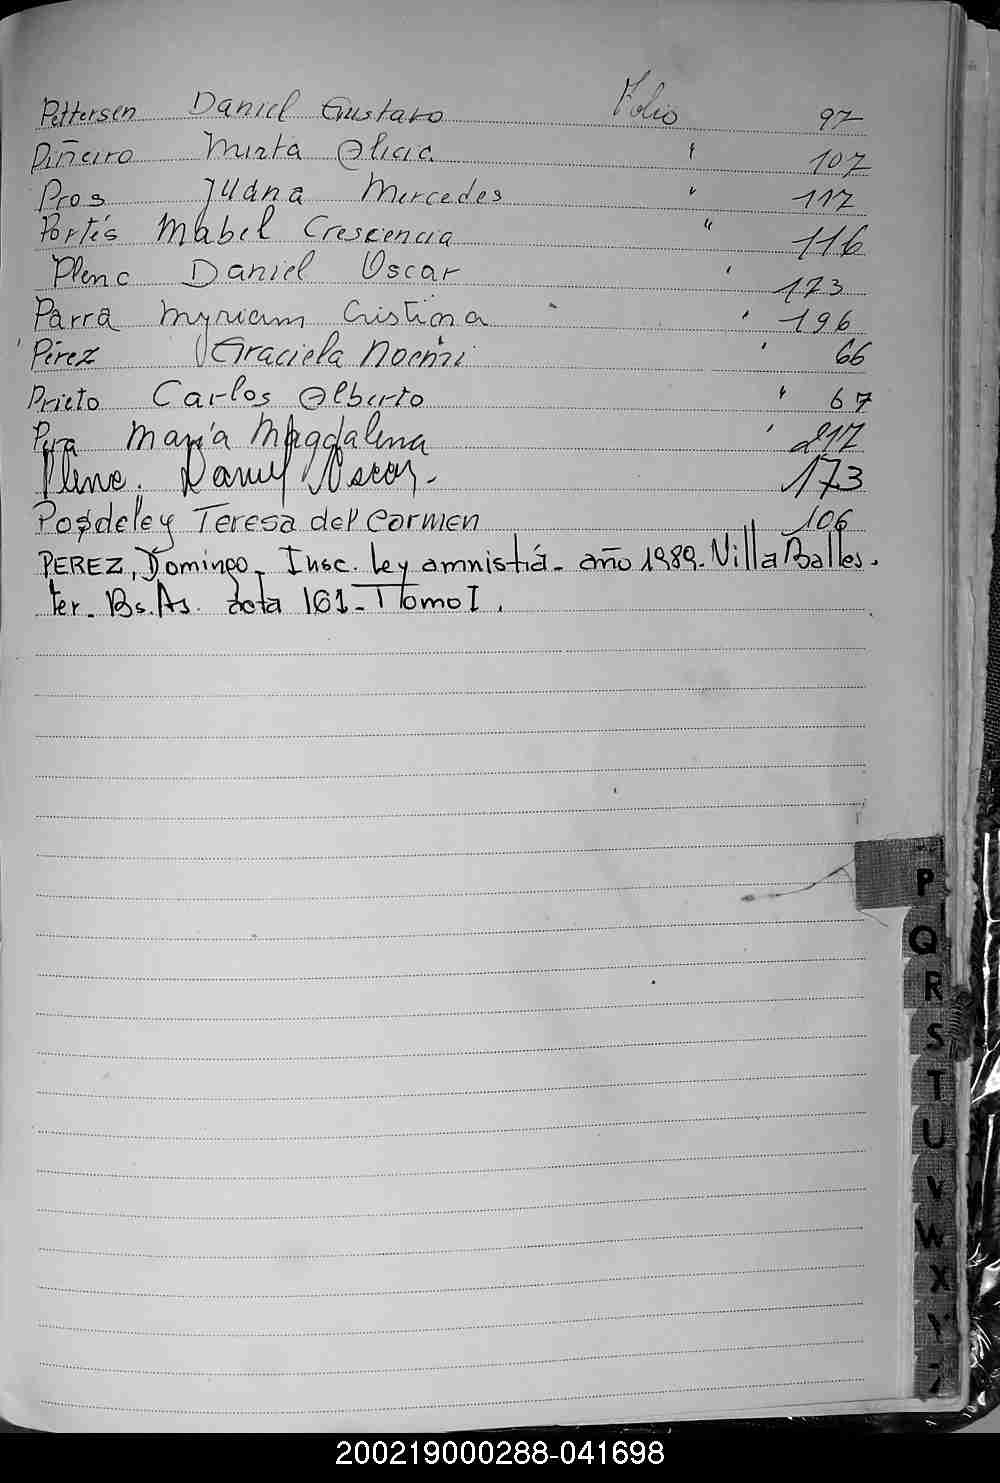 Pettersen Daniel Gustavo Folio 97
Piñeiro Mirta Alicia " 107
Pros Juana Mercedes " 117
Portis Mabel Crescencia " 116
Plenc Daniel Oscar " 173
Parra Myriam Cristina " 196
Pérez Graciela Noemi " 66
Prieto Carlos Alberto " 67
María Magdalena " 217
Plenc. Daniel Oscar. 173
Posdeley Teresa del Carmen 106
PEREZ, Domingo_ Insc. Ley amnistiá_ año 1989_ Villa Balles.
ter_ Bs.As. acta 161_Tomo I.
P
Q
R
S
T
U
V
W
X
Y
Z
200219000288-041698